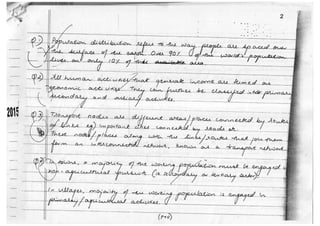 2
Q.1) Population distribution refers to the way people are spaced over
the surface of the earth. Over 90% of the world's population
lives on only 10% of the area.
Q.2) All human activities that generate income are termed as
economic activities. They can further be classified into primary
secondary and tertiary activities.
Q.3) Transport nodes are different areas/places connected by
of lines important cities connected by roads etc.
These nodes/places along with the links/routes that join them
form an interconnected network, known as a transport network
a majority of the working population must be engaged in
non-agricultural pursuits (ie secondary or tertiary sector)
In villages, majority of the working population is engaged in
primary/agricultural activities.
(PTO)
2015